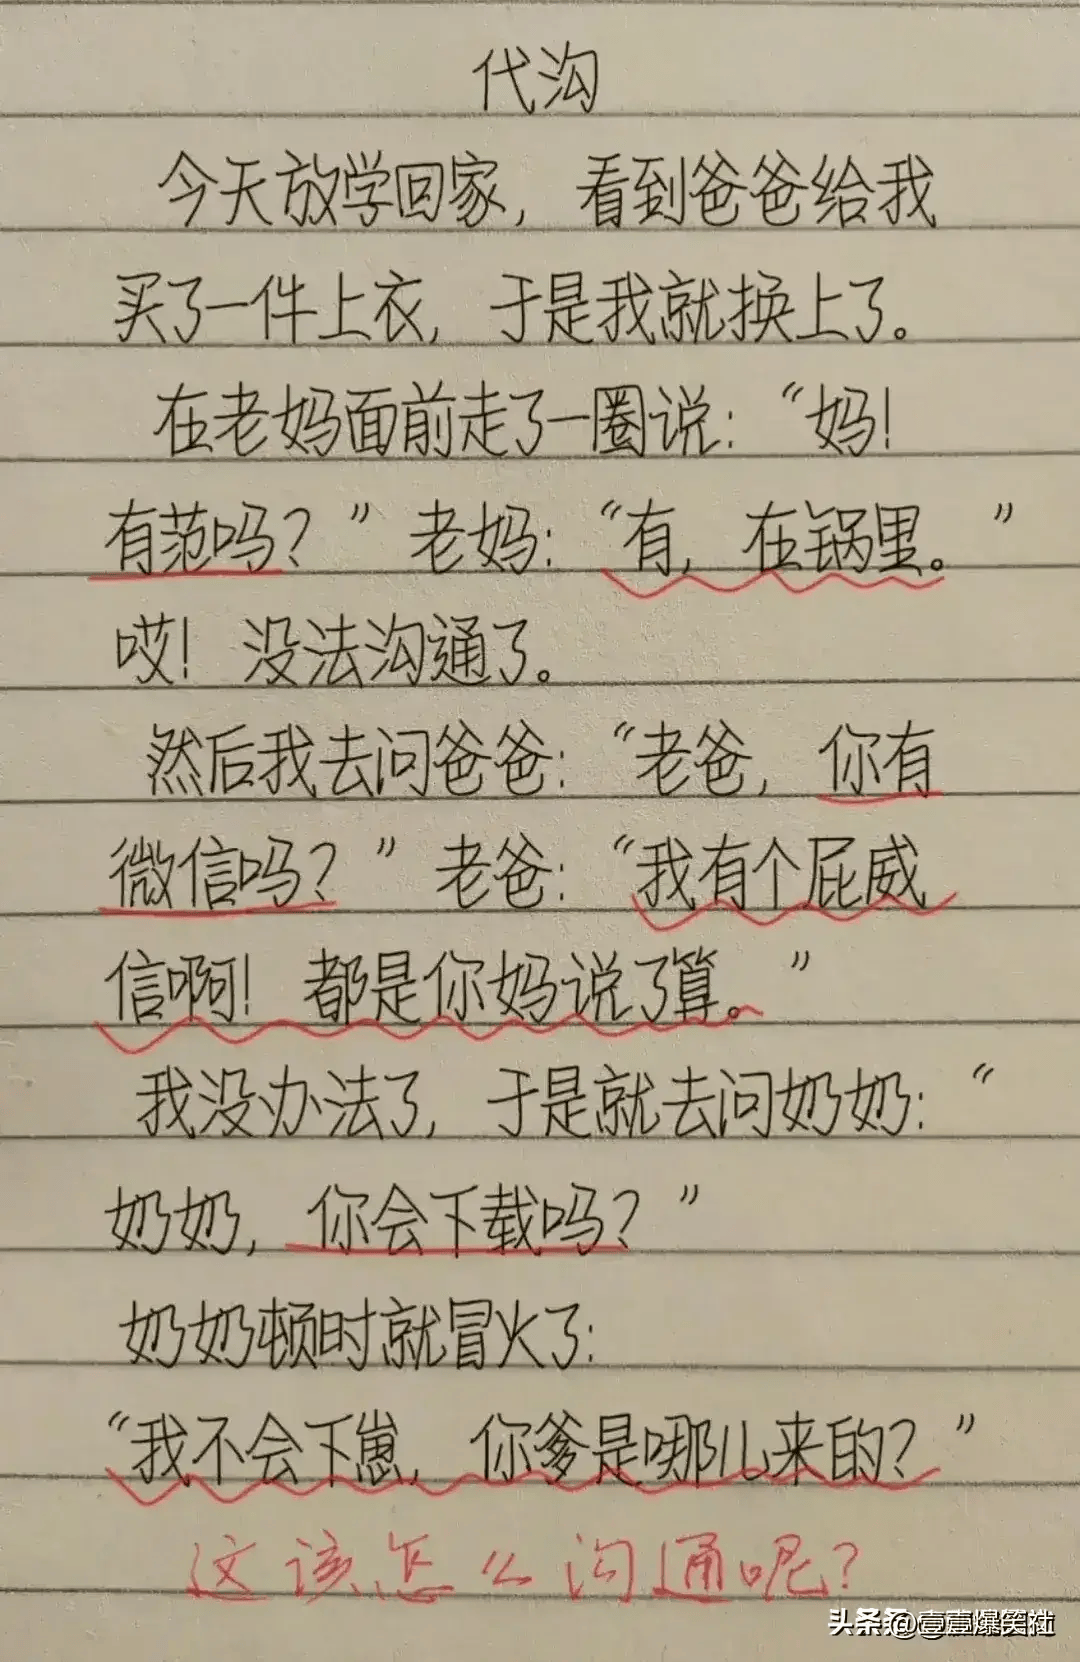 代沟
今天放学回家，看到爸爸给我
买了一件上衣，于是我就换上了。
在老妈面前走了一圈说：“妈！
有范吗？”老妈：“有，在锅里。”
哎！没法沟通了。
然后我去问爸爸：“老爸，你有
微信吗？”老爸：“我有个屁威
信啊！都是你妈说了算。”
我没办法了，于是就去问奶奶：“
奶奶，你会下载吗？”
奶奶顿时就冒火了：
“我不会下崽，你爹是哪儿来的？”
这该怎么沟通呢？
头条 @壹壹爆笑社